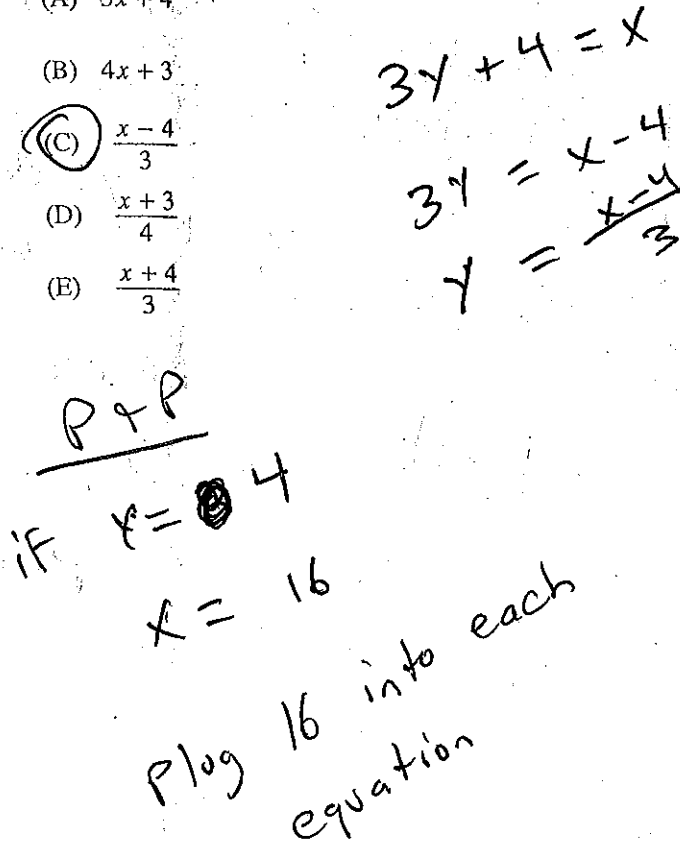 (A) 3x + 4
(B) 4x + 3
(C) x − 4 / 3
(D) x + 3 / 4
(E) x + 4 / 3
3y + 4 = x
3y = x - 4
y = x-4 / 3
P + P
if y = 4
x = 16
plug 16 into each
equation